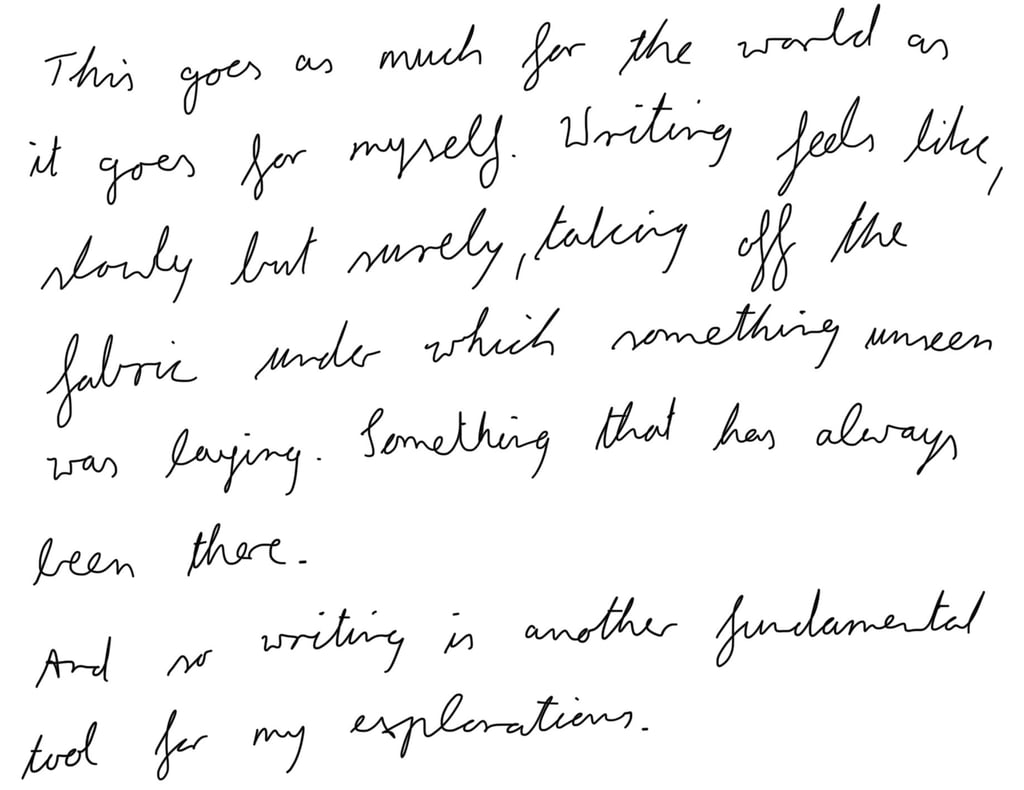 This goes as much for the world as
it goes for myself. Writing feels like,
slowly but surely, taking off the
fabric under which something unseen
was laying. Something that has always
been there.
And so writing is another fundamental
tool for my explorations.